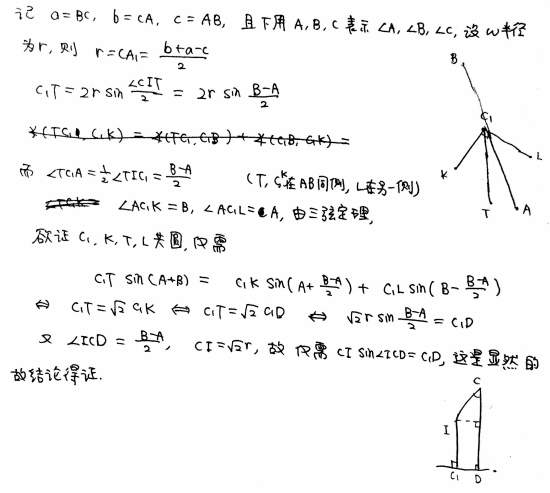 记 a=BC, b=CA, c=AB, 且下用 A, B, C 表示 ∠A, ∠B, ∠C, 设 ω 半径
为 r, 则 r=CA₁= (b+a-c)/2
C₁T = 2r sin (∠C₁IT)/2 = 2r sin (B-A)/2
而 ∠TC₁A = 1/2 ∠TIC₁ = (B-A)/2 (T, K在AB同侧, L在另一侧)
∠AC₁K=B, ∠AC₁L=A, 由三弦定理,
欲证 C₁, K, T, L 共圆, 仅需
C₁T sin(A+B) = C₁K sin(A+ (B-A)/2) + C₁L sin(B- (B-A)/2)
⇔ C₁T=√2 C₁K ⇔ C₁T=√2 C₁D ⇔ √2 r sin (B-A)/2 = C₁D
又 ∠ICD = (B-A)/2, CI=√2 r, 故 仅需 CI sin∠ICD = C₁D, 这是显然的
故结论得证.
B
C₁
K
L
T
A
C
I
C₁ D